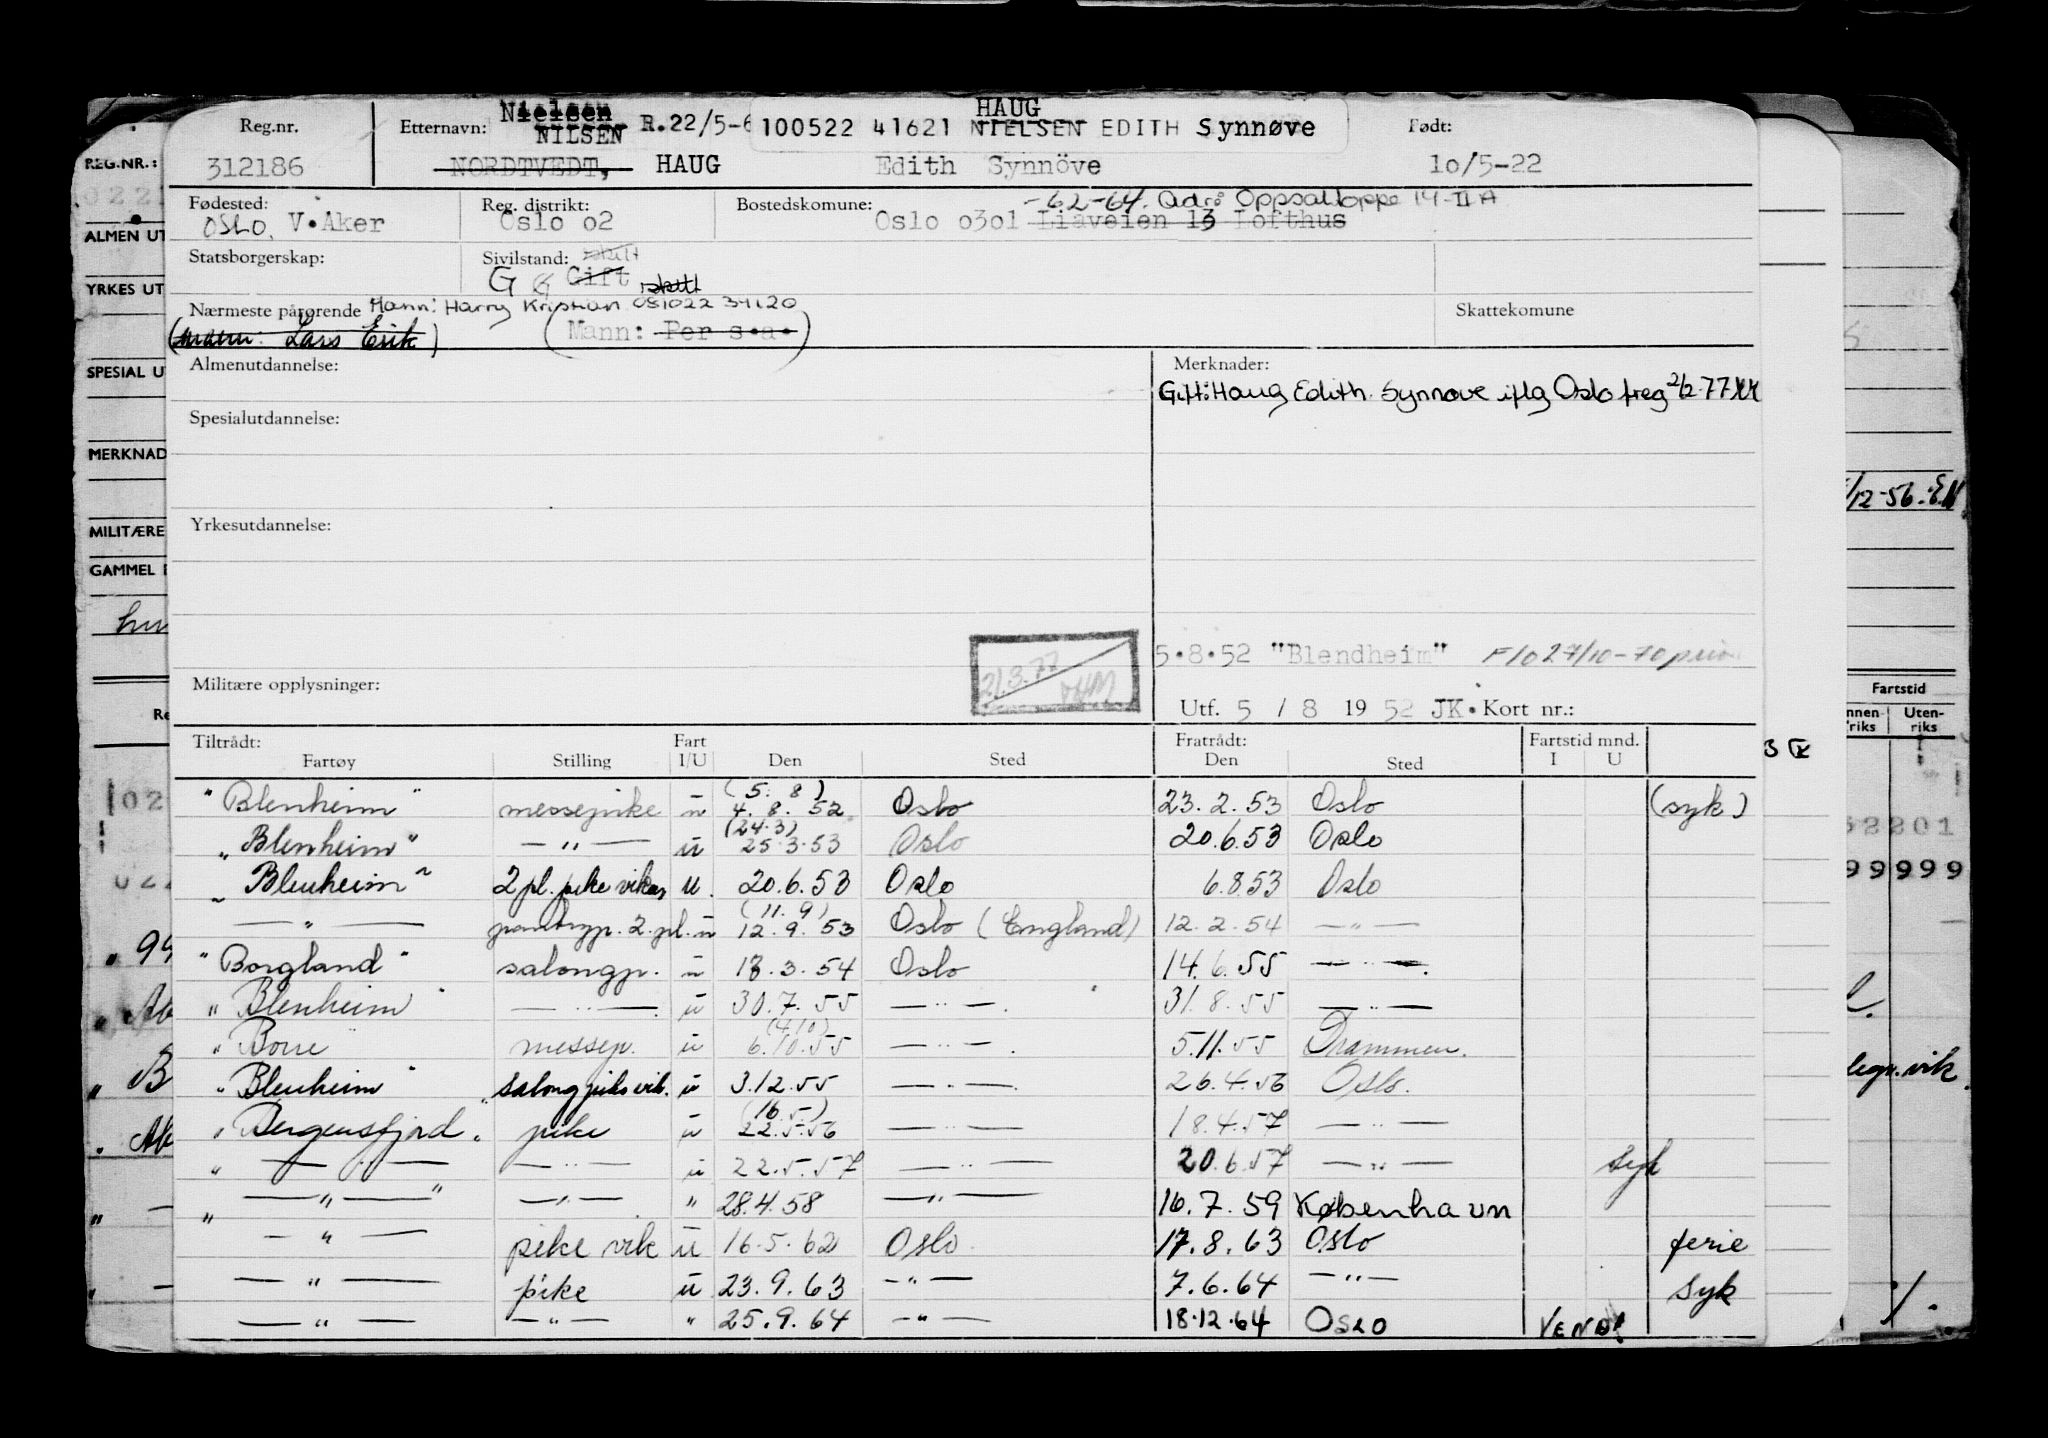 Reg.nr. Etternavn: Nielsen HAUG Født:
NILSEN R.22/5-6 100522 41621 NIELSEN EDITH Synnøve
312186 NORDTVEDT, HAUG Edith Synnöve 10/5-22
Fødested: Reg. distrikt: Bostedskomune: -62-64. Adr: Oppsaltoppe 14-II A
OSLO, V.Aker Oslo o2 Oslo o3o1 Liaveien 13 Lofthus
Statsborgerskap: Sivilstand: skilt
G G Gift skilt
Nærmeste pårørende Mann: Harry Kristian 081022 34120 Skattekomune
(mann: Lars Erik) (Mann: Per s.a.)
Almenutdannelse: Merknader:
Gift: Haug Edith Synnøve iflg Oslo freg 2/2-77
Spesialutdannelse:
Yrkesutdannelse:
5.8.52 "Blendheim" F/O 27/10-70
21.3.77
Militære opplysninger:
Utf. 5 / 8 19 52 JK. Kort nr.:
Tiltrådt: Fart Fratrådt: Fartstid mnd.
Fartøy Stilling I/U Den Sted Den Sted I U
(5. 8)
"Blenheim" messepike u 4. 8. 52 Oslo 23. 2. 53 Oslo (syk)
(24.3)
"Blenheim" — " — u 25.3.53 Oslo 20.6.53 Oslo
"Blenheim" 2 pl. pike vikar u. 20.6.53 Oslo 6.8.53 Oslo
(11. 9)
— " — 2. pl. u 12. 9. 53 Oslo (England) 12. 2. 54 — " —
"Borgland" salongp. u 18. 3. 54 Oslo 14. 6. 55 — " —.
"Blenheim" — " —. u 30. 7. 55 — " —. 31. 8. 55 — " —
(4/10)
"Borre messep. u 6.10.55 — " —. 5.11.55 Drammen.
"Blenheim" salongpike vik. u 3.12.55 — " —. 26.4.56 Oslo.
(16.5.)
"Bergensfjord" pike u 22.5.56 — " — 18.4.57 — " —
" — " — — " — u 22.5.57 — " — 20.6.57 — " — syk
" — " — " — " — " 28.4.58 — " — 16. 7. 59 København
— " — pike vik u 16.5.62 Oslo. 17. 8. 63 Oslo ferie
— " — pike u 23. 9. 63 — " — 7. 6. 64 — " — syk
— " — — " — " 25. 9. 64 — " — 18.12.64 OSLO VEND!
REG.NR.:
ALMEN UT
YRKES UT
SPESIAL U
MERKNAD
MILITÆRE
GAMMEL
/12-56.
Fartstid
nnen-riks Uten-riks
62201
99999
legn. vik.